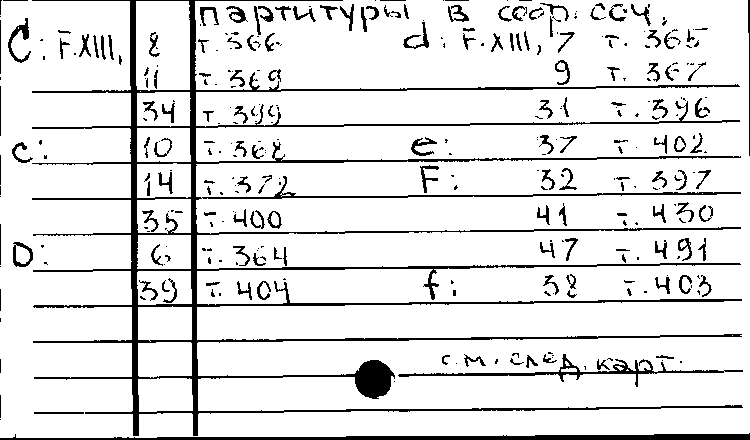 партитуры в собр. соч.
C: F.XIII, 8 т. 366 d: F.XIII, 7 т. 365
11 т. 369 9 т. 367
34 т. 399 31 т. 396
c: 10 т. 368 e: 37 т. 402
14 т. 372 F: 32 т. 397
35 т. 400 41 т. 430
D: 6 т. 364 47 т. 491
39 т. 404 f: 38 т. 403
см. след. карт.